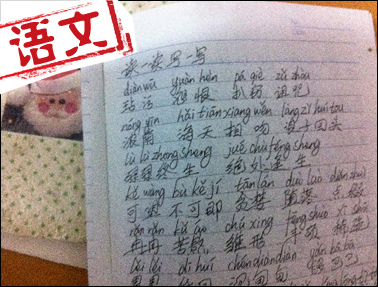 语文
读一读写一写
diàn wū yuàn hèn pá qiè zǔ zhòu
玷污 怨恨 扒窃 诅咒
nóng yīn hǎi tiān xiāng wěn làng zǐ huí tóu
浓荫 海天相吻 浪子回头
lù lù zhōng shēng jué chù féng shēng
碌碌终生 绝处逢生
kě wàng bù kě jí tān lán duò luò diǎn zhuì
可望不可即 贪婪 堕落 点缀
rǎn rǎn kǔ áo chú xíng fēng shuò
冉冉 苦熬 雏形 丰硕
léi léi dī huí chén diàn diàn